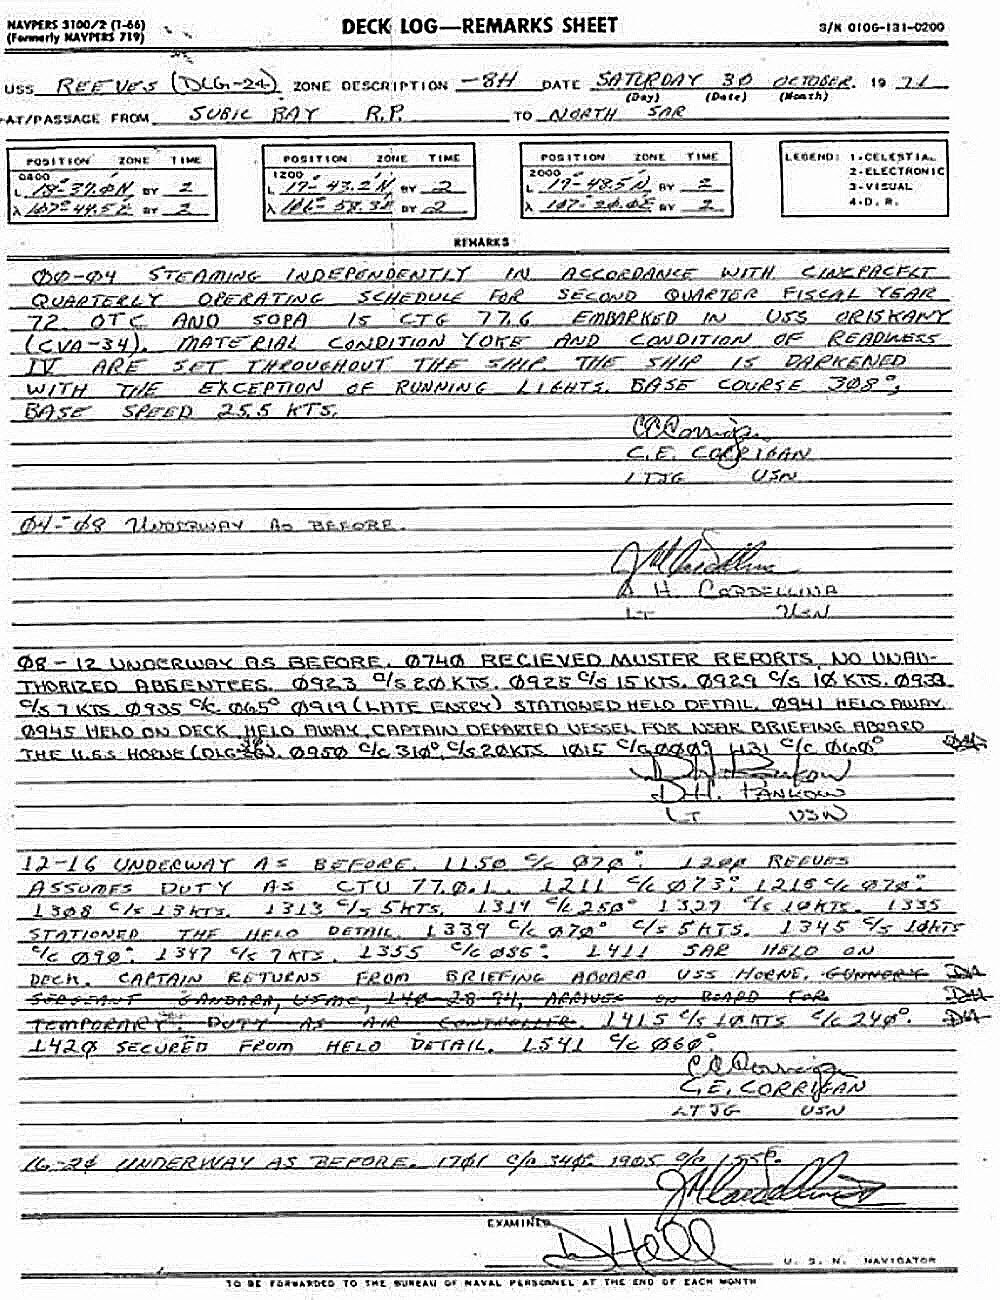 NAVPERS 3100/2 (1-66)
(Formerly NAVPERS 719)
DECK LOG—REMARKS SHEET
S/N 0106-131-0200
USS REEVES (DLG-24) ZONE DESCRIPTION -8H DATE SATURDAY 30 OCTOBER 19 71
(Day) (Date) (Month)
AT/PASSAGE FROM SUBIC BAY R.P. TO NORTH SAR
POSITION ZONE TIME
0800
L BY 2
λ 107° 44.5 E BY 2
POSITION ZONE TIME
1200
L 17° 43.2 N BY 2
λ 58.3 E BY 2
POSITION ZONE TIME
2000
L 17° 48.5 N BY 2
λ 107° 20.0 E BY 2
LEGEND: 1-CELESTIAL
2-ELECTRONIC
3-VISUAL
4-D. R.
REMARKS
00-04 STEAMING INDEPENDENTLY IN ACCORDANCE WITH CINCPACFLT
QUARTERLY OPERATING SCHEDULE FOR SECOND QUARTER FISCAL YEAR
72. OTC AND SOPA IS CTG 77.6 EMBARKED IN USS ORISKANY
(CVA-34). MATERIAL CONDITION YOKE AND CONDITION OF READINESS
IV ARE SET THROUGHOUT THE SHIP. THE SHIP IS DARKENED
WITH THE EXCEPTION OF RUNNING LIGHTS. BASE COURSE 308°,
BASE SPEED 25.5 KTS.
CECorrigan
C.E. CORRIGAN
LTJG USN
04-08 UNDERWAY AS BEFORE.
H. CARDELLINA
LT USN
08-12 UNDERWAY AS BEFORE. 0740 RECIEVED MUSTER REPORTS, NO UNAU-
THORIZED ABSENTEES. 0923 C/S 20 KTS. 0925 C/S 15 KTS. 0929 C/S 10 KTS. 0933
C/S 7 KTS. 0935 C/C 065° 0919 (LATE ENTRY) STATIONED HELO DETAIL. 0941 HELO AWAY.
0945 HELO ON DECK, HELO AWAY, CAPTAIN DEPARTED VESSEL FOR NSAR BRIEFING ABOARD
THE U.S.S HORNE (DLG-30). 0950 C/C 310°, C/S 20 KTS 1015 C/C 1131 C/C 060°
D.H. PANKOW
LT USN
12-16 UNDERWAY AS BEFORE. 1150 C/C 070°. 1200 REEVES
ASSUMES DUTY AS CTU 77.0.1. 1211 C/C 073°. 1215 C/C 070°.
1308 C/S 13 KTS. 1313 C/S 5 KTS. 1314 C/C 250° 1329 C/S 10 KTS. 1335
STATIONED THE HELO DETAIL. 1339 C/C 070° C/S 5 KTS. 1345 C/S 10 KTS
C/C 090°. 1347 C/S 7 KTS. 1355 C/C 085°. 1411 SAR HELO ON
DECK. CAPTAIN RETURNS FROM BRIEFING ABOARD USS HORNE. GUNNERY
SERGEANT GANDARA, USMC, ARRIVES ON BOARD FOR
TEMPORARY DUTY AS AIR CONTROLLER. 1415 C/S 10 KTS C/C 240°.
1420 SECURED FROM HELO DETAIL. 1541 C/C 060°.
CECorrigan
C.E. CORRIGAN
LTJG USN
16-24 UNDERWAY AS BEFORE. 1701 C/C 340°. 1905 C/C 155°.
EXAMINED
U. S. N. NAVIGATOR
TO BE FORWARDED TO THE BUREAU OF NAVAL PERSONNEL AT THE END OF EACH MONTH